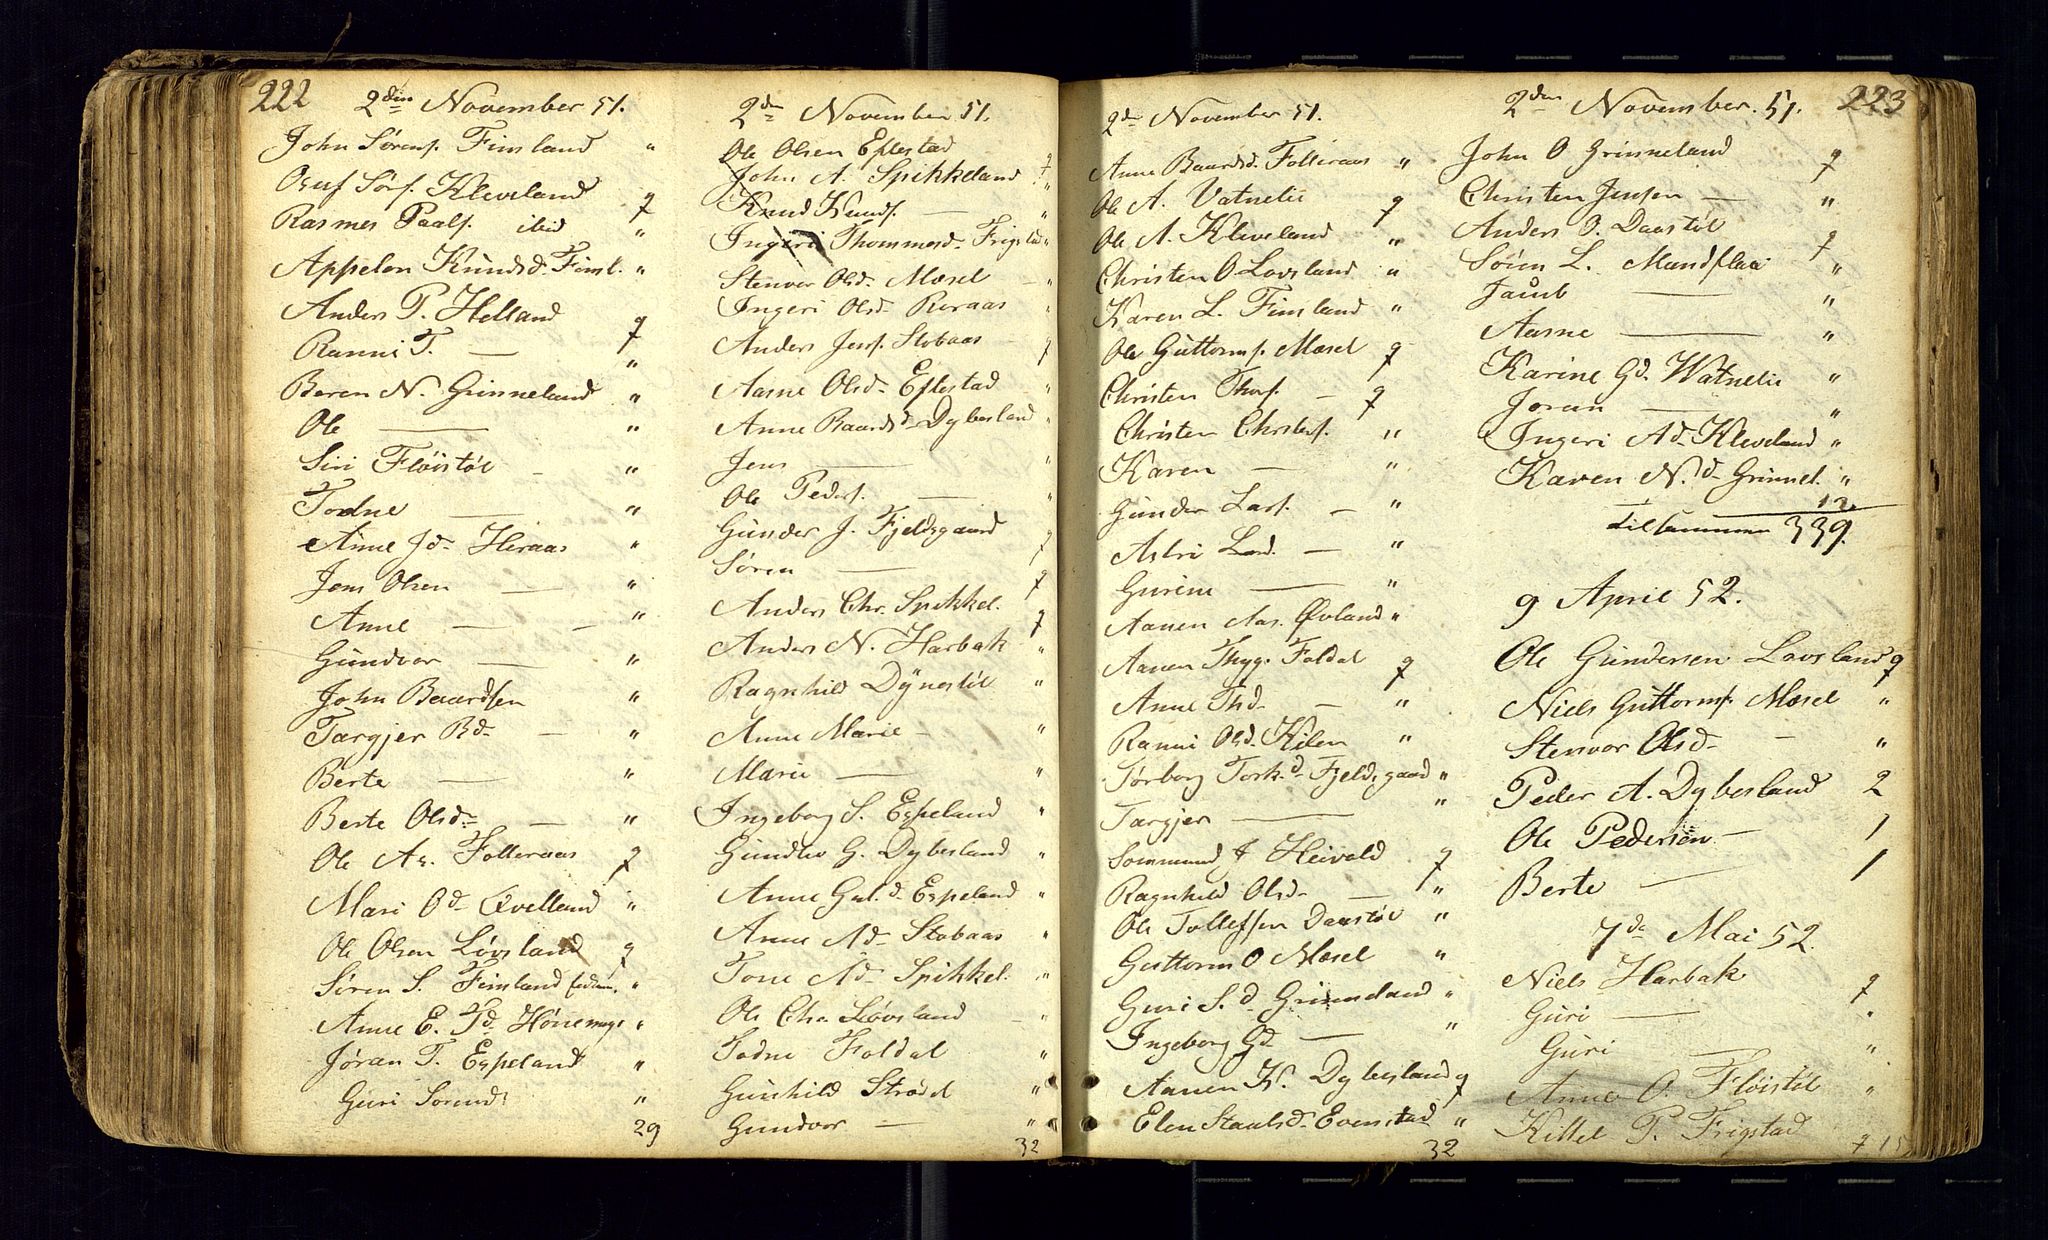 222
2den November 51.
John Sørens. Finsland "
Oluf Sørs. Kleveland q
Rasmus Paals. ibid "
Appelon Knudsd. Finsl. "
Anders P. Helland q
Ranni T. — "
Beren N. Grinneland "
Ole — "
Siri Fløistøl — "
Todne — "
Anne Jd. Heraas "
Jens Olsen — "
Anne — "
Gundvor — "
John Baardsen "
Targjer Bd. — "
Berte — "
Berte Olsd. — "
Ole As. Folleraas q
Mari Od. Øvelland "
Ole Olsen Løvsland q
Søren S. Finsland "
Anne E. Pd. Hønemyr "
Jøran T. Espeland "
Guri Sørensd. "
29
2den November 51.
Ole Olsen Eftestad q
John A. Spikkeland "
Knud Knuds. — "
Ingeri Thommesd. Frigstad "
Stenvor Olsd. Mæsel "
Ingeri Olsd. Reraas "
Anders Jens. Stobaas q
Aasne Olsd. Eftestad "
Anne Baardsd. Dybesland "
Jens — "
Ole Peders. — "
Gunder J. Fjeldsgaard q
Søren — q
Anders Chr. Spikkel. q
Anders N. Harbak "
Ragnhild Dynestøl "
Anne Marie — "
Marie — "
Ingeborg S. Espeland "
Gundlev G. Dybesland "
Anne Gul.d. Espeland "
Anne Ad. Stobaas "
Tone Ad. Spikkel. "
Ole Chr. Løvsland "
Todne Foldal "
Gunhild Strødet "
Gundvor — "
32
2den November 51.
Anne Baardsd. Folleraas "
Ole A. Vatnelie q
Ole A. Kleveland "
Christen O. Lovsland "
Karen L. Finsland "
Ole Guttorms. Mæsel q
Christen Thors. — q
Christen Christens. "
Karen — "
Gunder Lars. — "
Astri Lard. — "
Gurine — "
Aanen Aas. Øvland "
Aanen Thyg. Foldal q
Anne Thd. — "
Ranni Olsd. Kilen "
Tørborg Tork.d. Fjeldsgaard "
Targjer — "
Sommund J Heivold q
Ragnhild Olsd. — "
Ole Tollefsen Daastøl "
Guttorm O Mæsel "
Guri S.d. Grinneland "
Ingeborg Gd. — "
Aanen K. Dybesland q
Elen Staalsd. Evenstad "
32
2den November. 51. 223
John O Grinneland q
Christen Jensen — "
Anders O. Daastøl q
Søren L. Mundflaa "
Jacob — "
Aasne — "
Karine Gd. Watnelie "
Joran — "
Ingeri Ad. Kleveland "
Karen N.d. Grinnel. "
12.
tilsammen 339.
9 April 52.
Ole Gundersen Lovsland q
Niels Guttorms. Mæsel "
Stenvor Olsd. — "
Peder A. Dybesland 2
Ole Pedersen — 1
Berte — 1
7de Mai 52.
Niels Harbak q
Guri — "
Guri — "
Anne O. Fløistøl "
Kittel P. Frigstad q 15